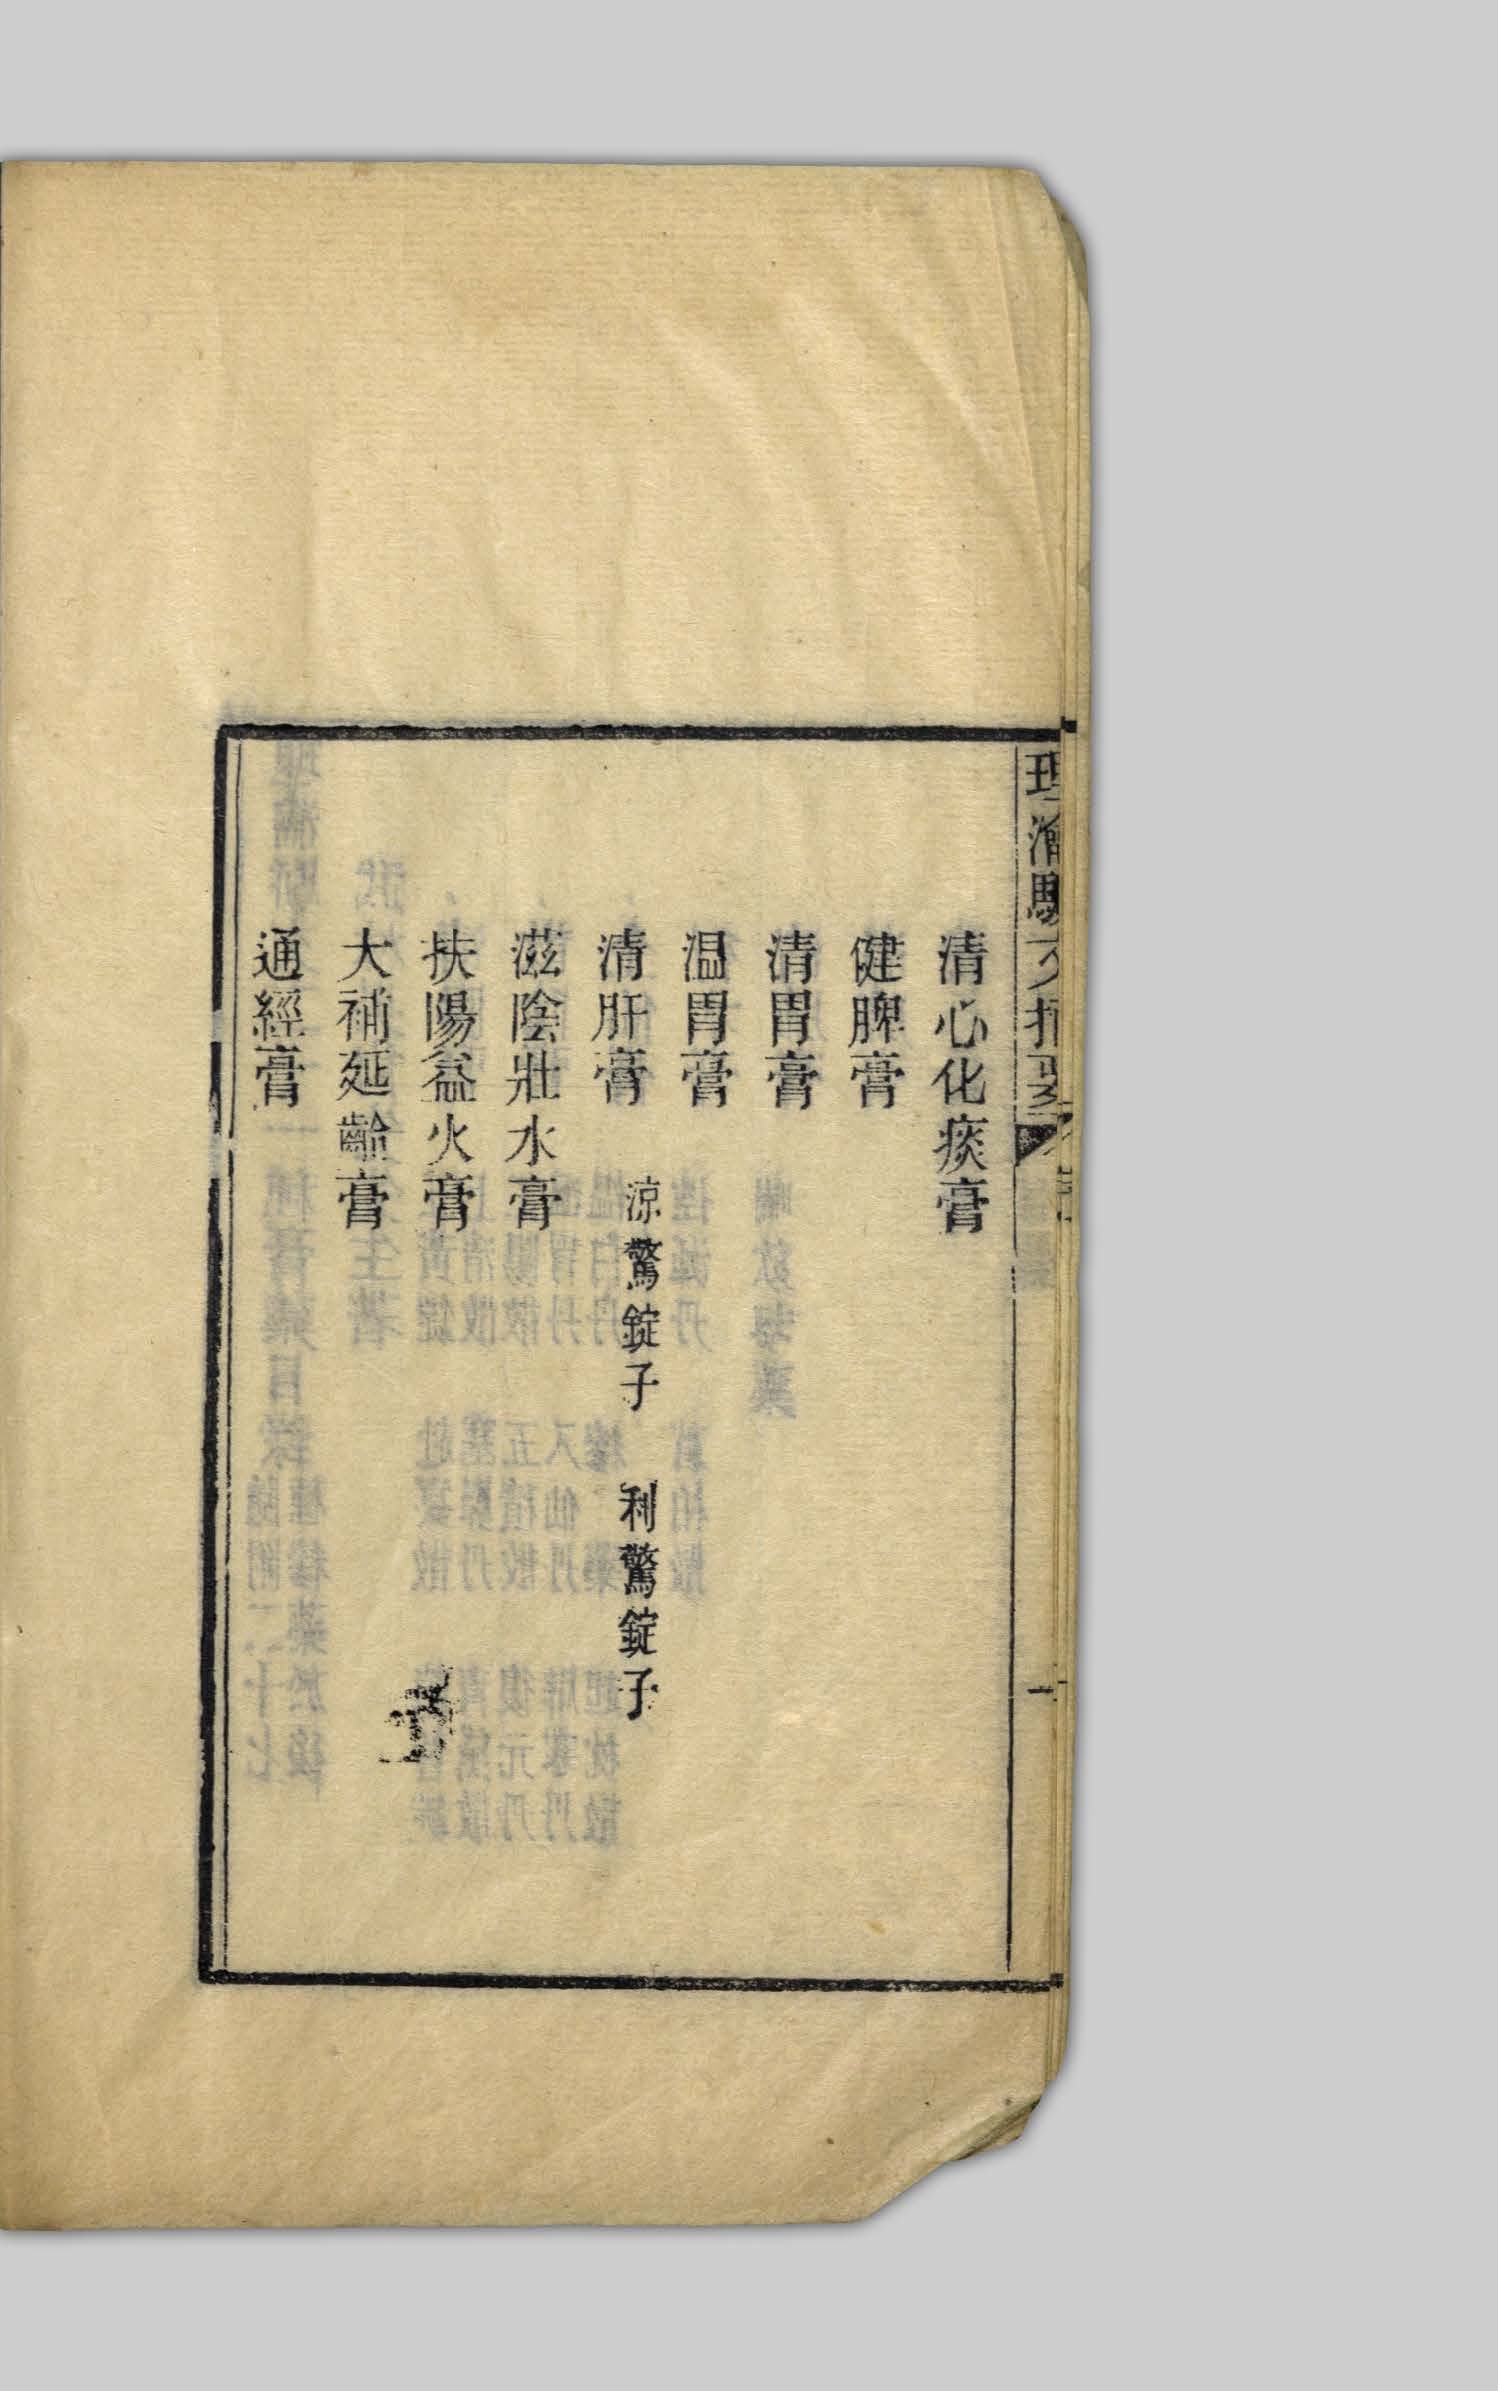 理瀹駢文摘要
清心化痰膏
健脾膏
清胃膏
温胃膏
清肝膏 涼驚錠子 利驚錠子
滋陰壯水膏
扶陽益火膏
大補延齡膏
通經膏